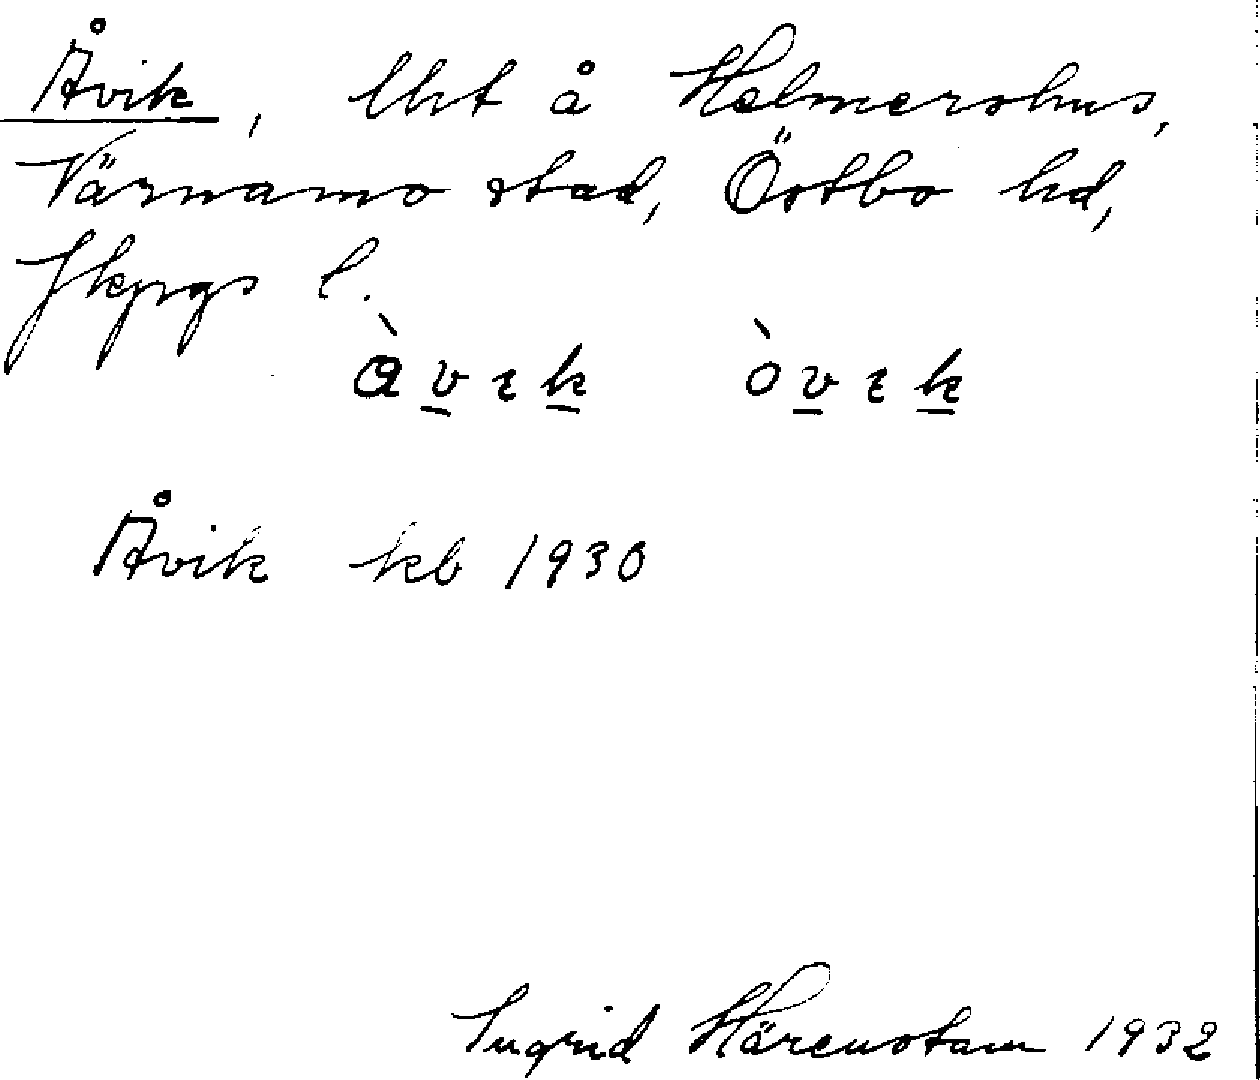 Åvik, lht å Helmershus,
Värnamo stad, Östbo hd,
Jkpgs l.
àvɪk òvɪk
Åvik kb 1930
Ingrid Härenstam 1932